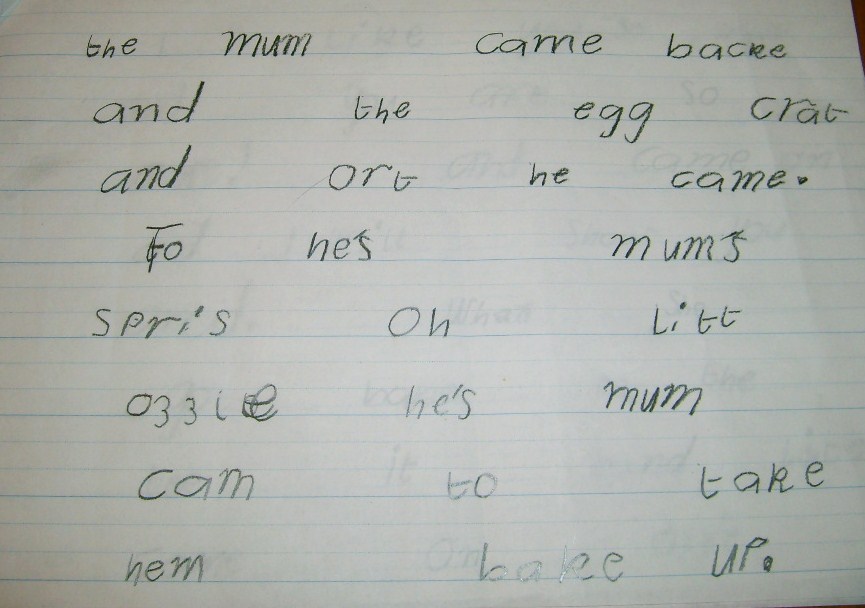 the mum came backe
and the egg crat
and ort he came.
To he's mum's
spri's Oh Litt
ozzie he's mum
cam to take
hem bake up.